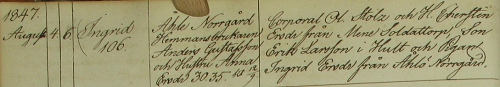 1847.
August 4 6 Ingrid
106.
Åhle Norrgård
Hemmansbrukaren
Anders Gustafsson
och Hustru Anna
Ersdr 30. 35.
Corporal Ol. Stolz och H. Eberstin
Ersdr från Mene Soldattorp, Son
Erik Larsson i Hult och Pigan
Ingrid Ersdr från Åhlö Norrgård.